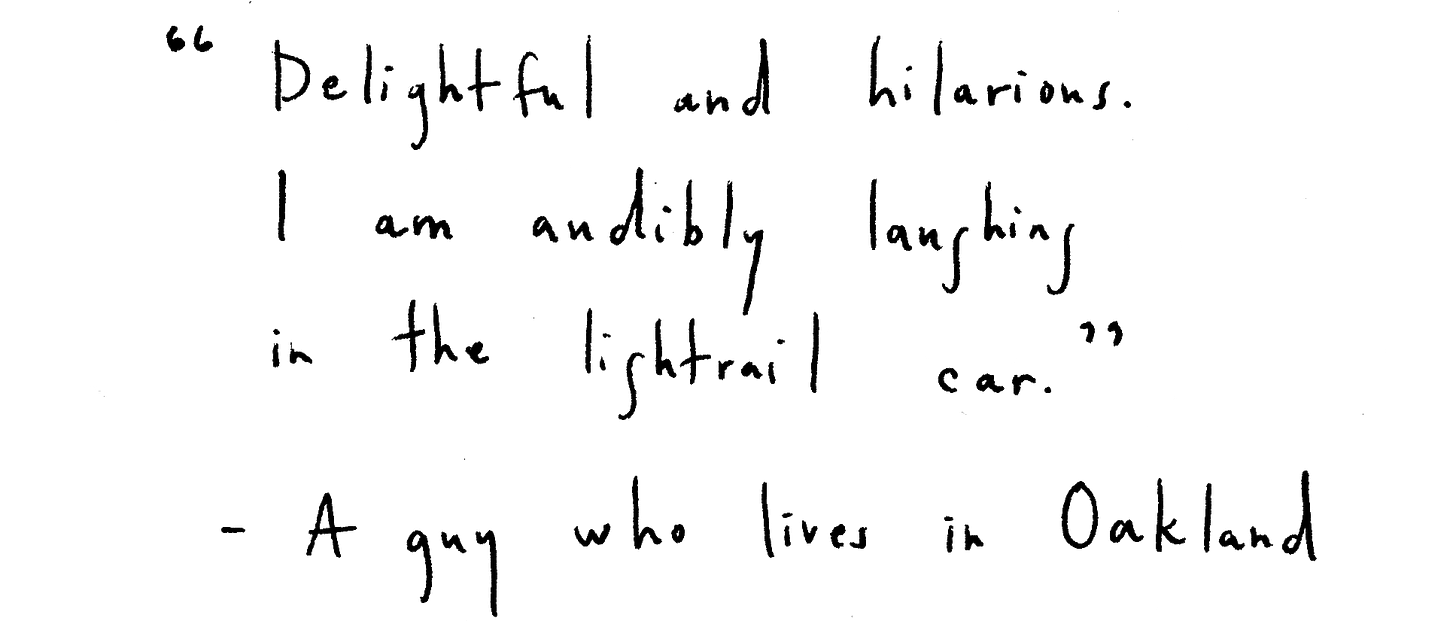 “Delightful and hilarious.
I am audibly laughing
in the lightrail car.”
- A guy who lives in Oakland